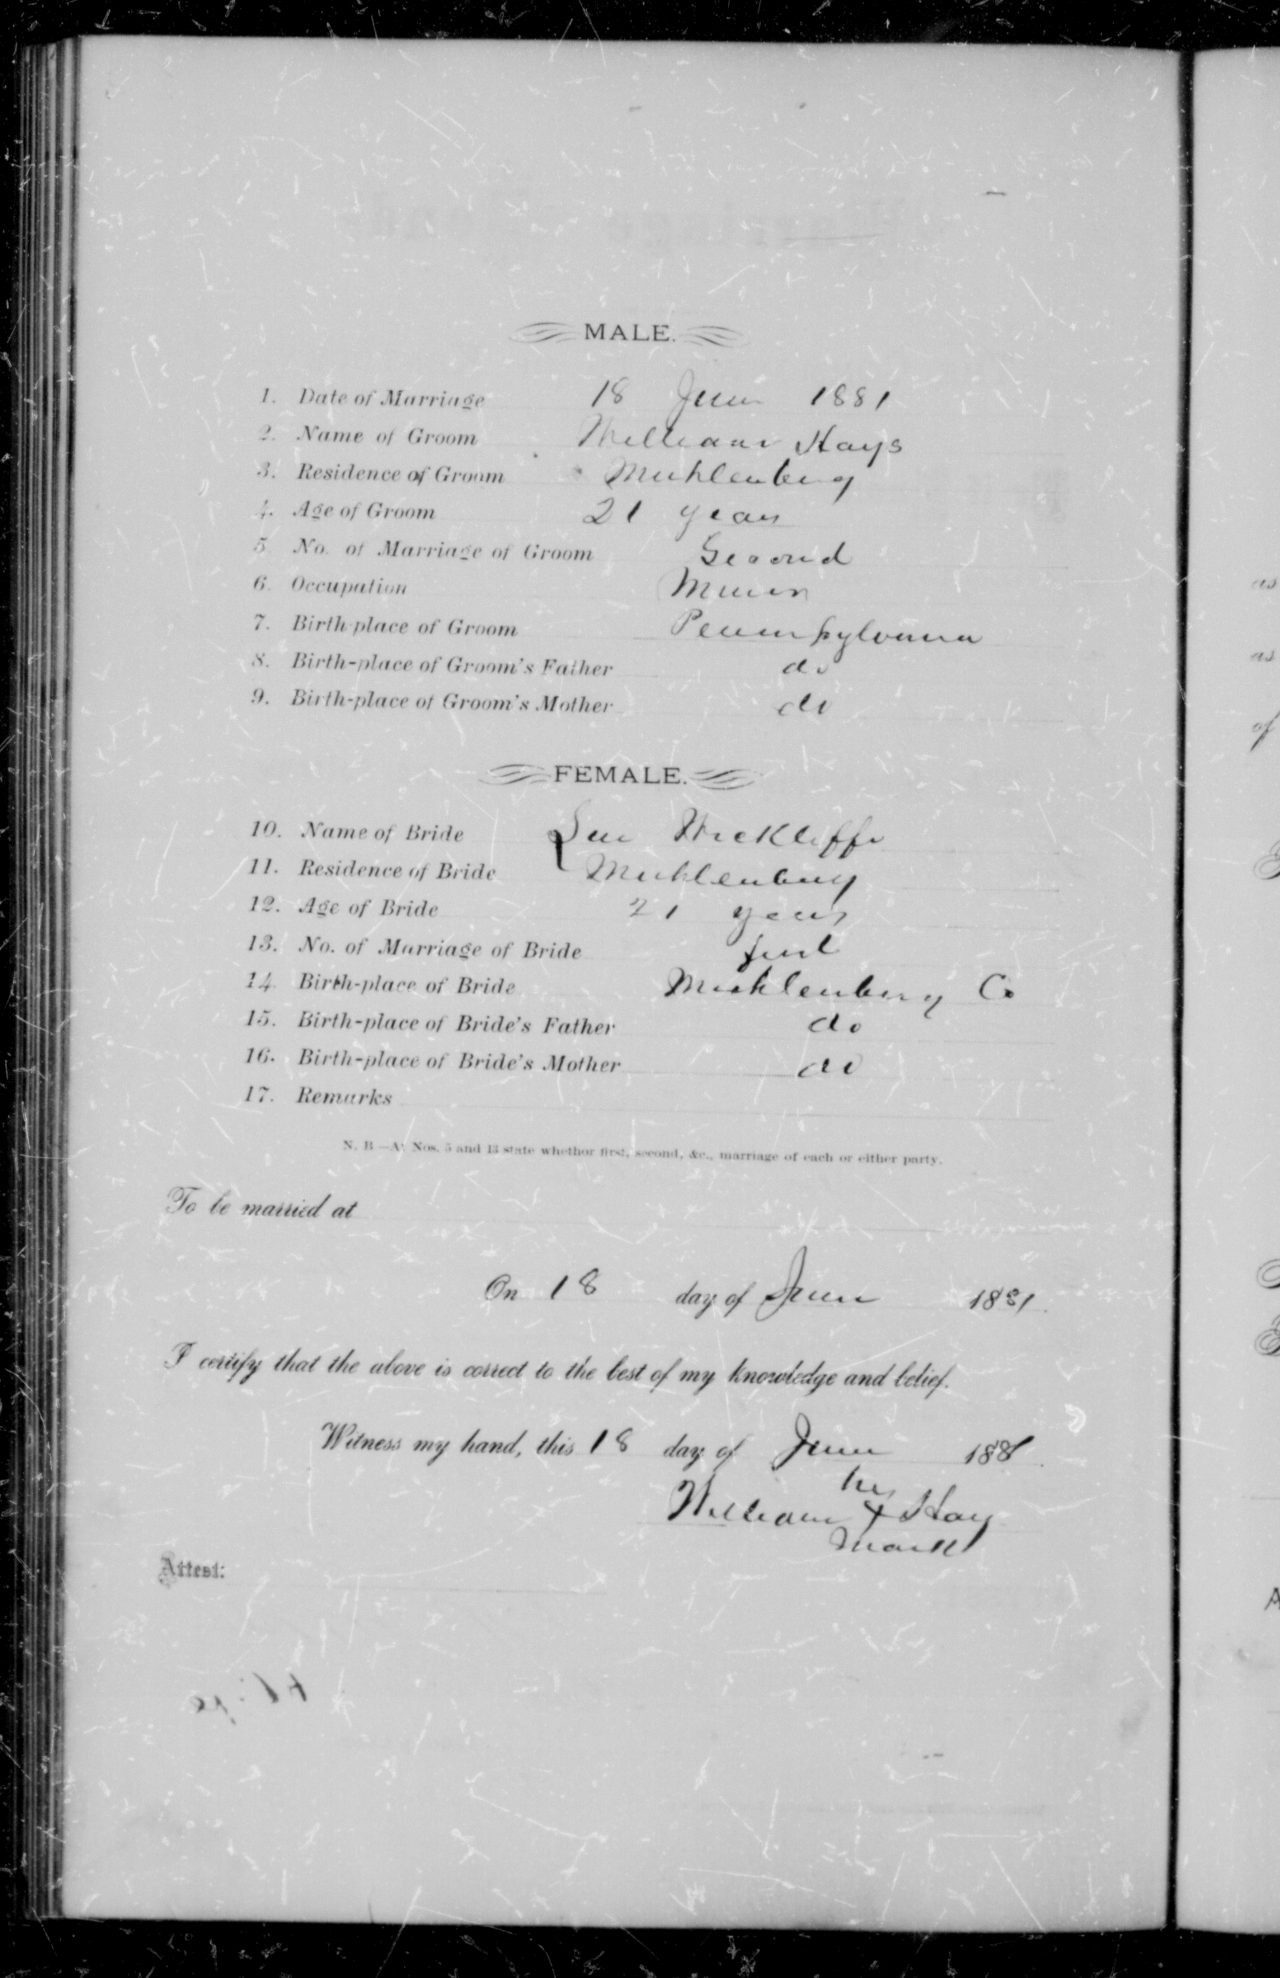 MALE.
1. Date of Marriage 18 June 1881
2. Name of Groom William Hays
3. Residence of Groom Muhlenberg
4. Age of Groom 21 years
5. No. of Marriage of Groom Second
6. Occupation Miner
7. Birth-place of Groom Pennsylvania
8. Birth-place of Groom's Father do
9. Birth-place of Groom's Mother do
FEMALE.
10. Name of Bride Sue Wickliffe
11. Residence of Bride Muhlenberg
12. Age of Bride 21 years
13. No. of Marriage of Bride first
14. Birth-place of Bride Muhlenberg Co
15. Birth-place of Bride's Father do
16. Birth-place of Bride's Mother do
17. Remarks
N. B.—At Nos. 5 and 13 state whether first, second, &c., marriage of each or either party.
To be married at
On 18 day of June 1881.
I certify that the above is correct to the best of my knowledge and belief.
Witness my hand, this 18 day of June 1881.
his
William X Hay
mark
Attest:
as
as
of